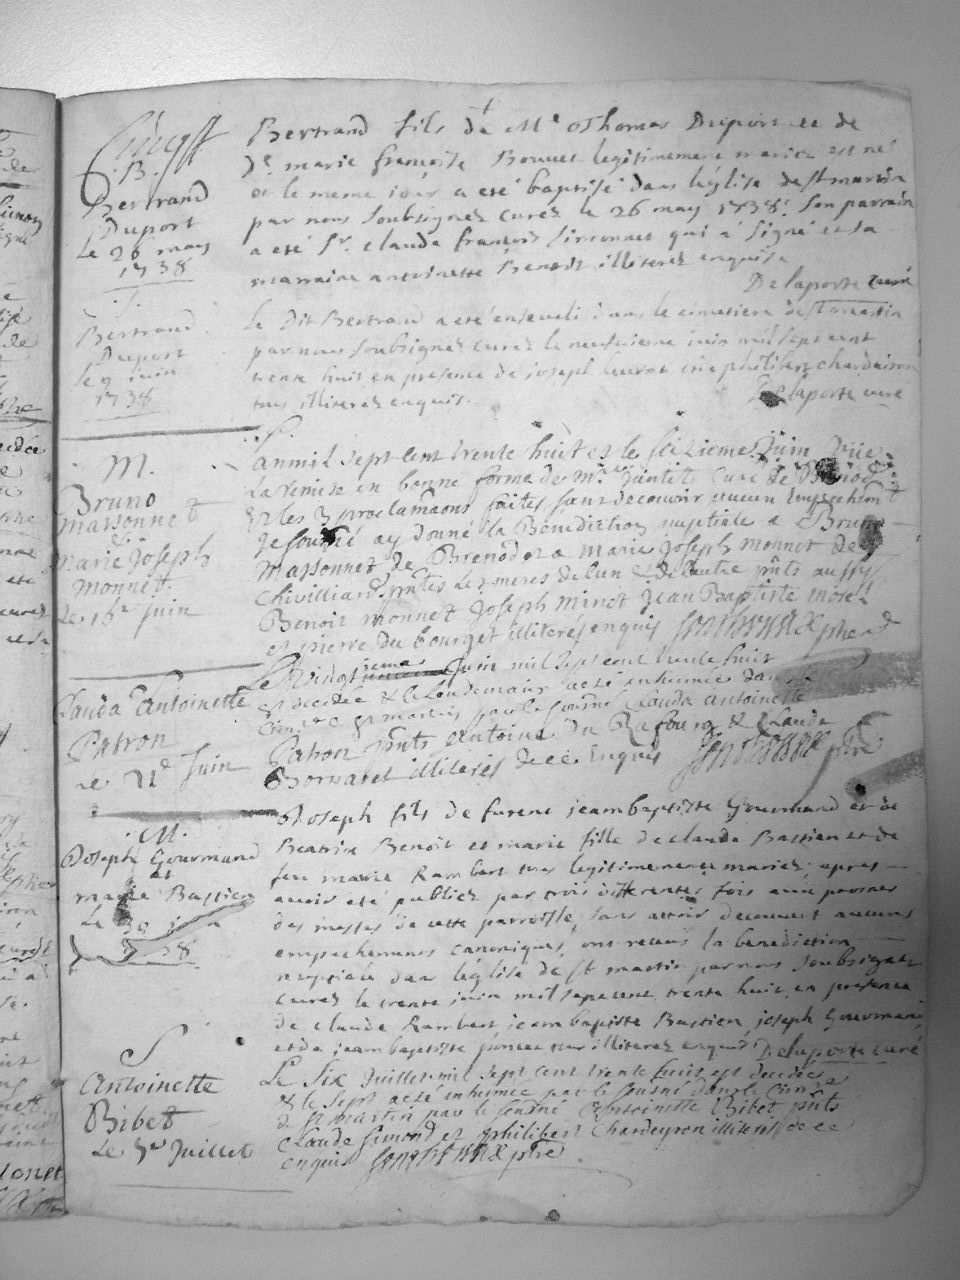 B.
Bertrand
Duport
Le 26 may
1738
Bertrand fils de Me Thomas Duport et de
De. marie françoise Bouvet legitimement mariez est né
et le meme jour a eté baptisé dans l'église de st martin
par nous soubsignez curez le 26 may 1738. son parrain
a eté Sr. claude françois qui a signé et sa
marraine antoinette Benoit illiterez enquise
Delaporte curé
S.
Bertrand
Duport
le 9 juin
1738
Le Dit Bertrand a eté enseveli dans le cimetiere de st martin
par nous soubsignez curez le neufvieme juin mil sept cent
trente huit en presence de joseph et de philibert chardeiron
tous illiterez enquis.
Delaporte curé
M.
Bruno
massonnet
&
Marie joseph
Monnet.
Le 16e juin
L'an mil sept cent trente huit et le seizieme juin Vüe
La remise en bonne forme de Mr. curé de
& les 3 proclamaons faites sans decouvrir aucun Empechemt
Je sousné ay donné la Benediction nuptiale a Bruno
Massonnet de Brenod & a Marie joseph Monnet de
Chivilliard pnts Les meres de l'un & de l'autre pnts aussy
Benoit monnet joseph minet jean Baptiste morel
et pierre du bourget illiterés enquis
Clauda Antoinette
Patron
Le 21e juin
Le Vingt juin mil sept cent trente huit
est decedée & le lendemain a eté inhumée dans le
Cimre de st martin par le sousné Clauda antoinette
Patron pnts Antoine du & Claude
Bornaret illiterés de ce Enquis
M.
Joseph Gourmand
et
marie Bastien
Le 30 juin
1738
Joseph fils de furent jeambaptiste Gourmand et de
Beatrix Benoit et marie fille de claude Bastien et de
feu marie Rambert tous legitimement mariez, apres
avoir eté publiez par trois differentes fois aux prosnes
des messes de cette parroisse, sans avoir decouvert aucuns
empechemens canoniques, ont receus la benediction
nuptiale dans l'église de st martin par nous soubsignez
curez le trente juin mil sept cent trente huit en presence
de claude Rambert, jeam baptiste Bastien, joseph Gourmand,
et de jeam baptiste poncet tous illiterez enquis Delaporte curé
S
Antoinette
Bibet
Le 7e Juillet
Le Six Juillet mil sept cent trente huit est decedée
& le sept a eté inhumée par le sousné dans le Cimre
de st martin par le sousné Antoinette Bibet pnts
Claude Simond et philibert Chardeyron illiterés de ce
enquis